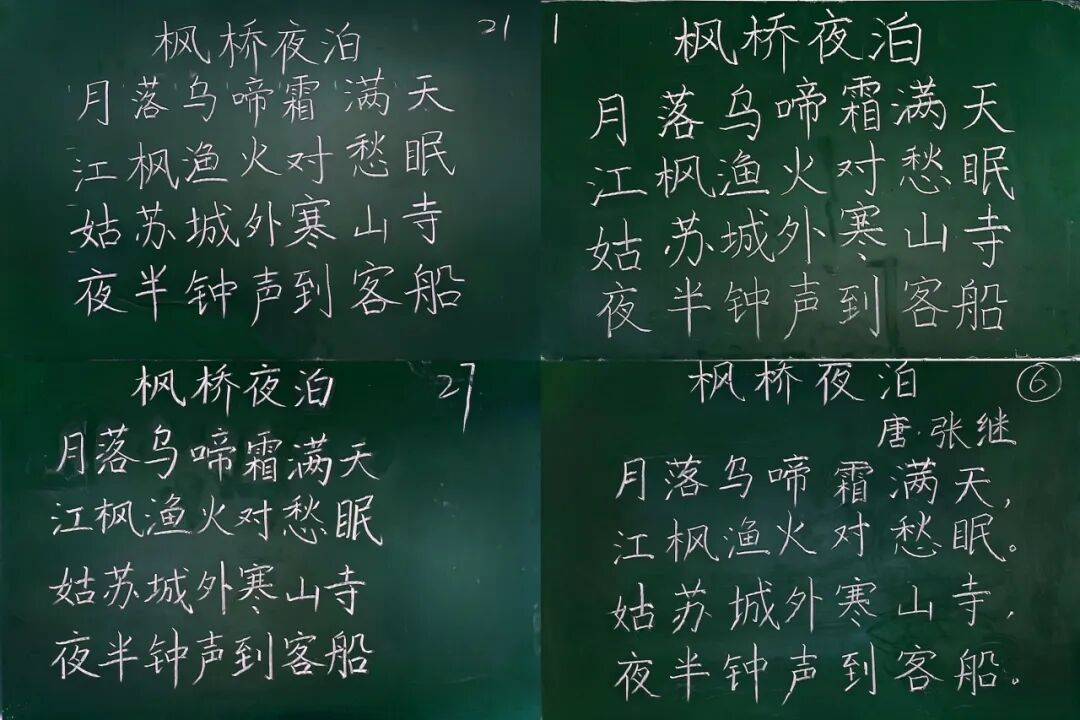 枫桥夜泊 21
月落乌啼霜满天
江枫渔火对愁眠
姑苏城外寒山寺
夜半钟声到客船
1 枫桥夜泊
月落乌啼霜满天
江枫渔火对愁眠
姑苏城外寒山寺
夜半钟声到客船
枫桥夜泊 27
月落乌啼霜满天
江枫渔火对愁眠
姑苏城外寒山寺
夜半钟声到客船
枫桥夜泊 ⑥
唐·张继
月落乌啼霜满天,
江枫渔火对愁眠。
姑苏城外寒山寺,
夜半钟声到客船。